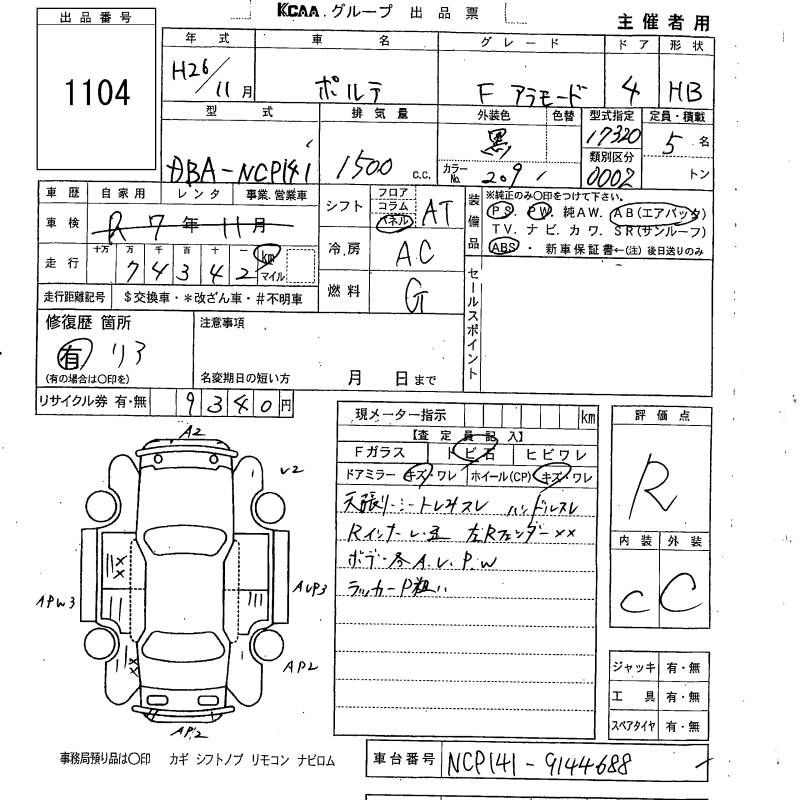 KCAA グループ 出品票
主催者用
出品番号
1104
年式 車名 グレード ドア 形状
H26/11月 ポルテ F アラモード 4 HB
型式 排気量 外装色 色替 型式指定 定員・積載
DBA-NCP141 1500 c.c. 黒 17320 5名
カラーNo. 209 類別区分 0002 トン
車歴 自家用 レンタ 事業、営業車
車検 R7年11月
走行 十万 万 千 百 十 一
74342 km マイル
走行距離記号 $交換車・*改ざん車・#不明車
シフト フロア コラム パネル AT
冷房 AC
燃料 G
装備品
※純正のみ○印をつけて下さい。
PS. PW. 純AW. AB(エアバッグ)
TV. ナビ. カワ. SR(サンルーフ)
ABS・ 新車保証書←(注)後日送りのみ
セールスポイント
修復歴 箇所
有 リア
(有の場合は○印を)
注意事項
名変期日の短い方 月 日まで
リサイクル券 有・無 9340円
現メーター指示 km
【査定員記入】
Fガラス トビ石 ヒビワレ
ドアミラー キズ・ワレ ホイール(CP) キズ・ワレ
天張り・シートしみスレ ハンドルスレ
ボデー各A.U.P.W
ラッカーP粗い
評価点
R
内装 外装
C C
A2
U2
APW3
AUP3
AP2
AP2
ジャッキ 有・無
工具 有・無
スペアタイヤ 有・無
事務局預り品は○印 カギ シフトノブ リモコン ナビロム
車台番号 NCP141-9144688